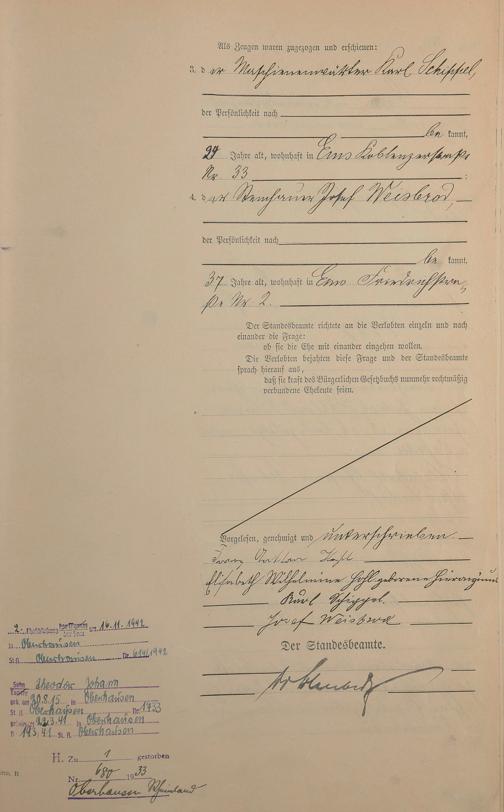 Als Zeugen waren zugezogen und erschienen:
3. der Maschienenwärter Karl Schippel,
der Persönlichkeit nach
be kannt,
24 Jahre alt, wohnhaft in Ems Koblenzerstraße
Nr. 33
4. der Steinhauer Josef Weisbrod,
der Persönlichkeit nach
be kannt,
37 Jahre alt, wohnhaft in Ems Friedrichstra-
ße Nr. 2.
Der Standesbeamte richtete an die Verlobten einzeln und nach
einander die Frage:
ob sie die Ehe mit einander eingehen wollen.
Die Verlobten bejahten diese Frage und der Standesbeamte
sprach hierauf aus,
daß sie kraft des Bürgerlichen Gesetzbuchs nunmehr rechtmäßig
verbundene Eheleute seien.
Vorgelesen, genehmigt und unterschrieben
Franz Hohl
Elisabeth Wilhelmine Hohl geborene Hieronymus
Karl Schippel
Josef Weisbrod
Der Standesbeamte.
2. am 14.11.1942
in Oberhausen
St.A. Oberhausen Nr. 614/1942
Sohn Theodor Johann
geb. am 30.8.15 in Oberhausen
St. A. Oberhausen Nr. 1933
22.3.41 in Oberhausen
193.41 St. A. Oberhausen
H. Zu 1 gestorben
Nr. 680 1933
Oberhausen Rheinland